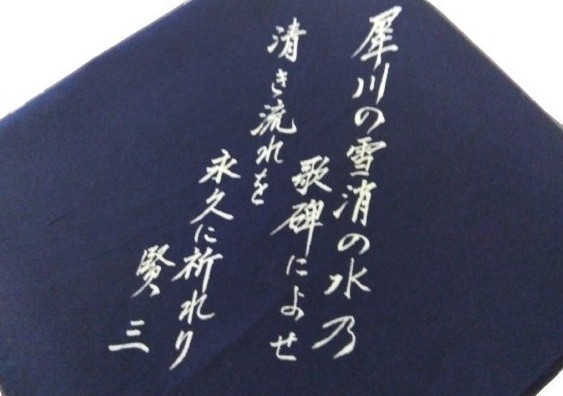 犀川の雪消の水乃
歌碑によせ
清き流れを
永久に祈れり
賢三